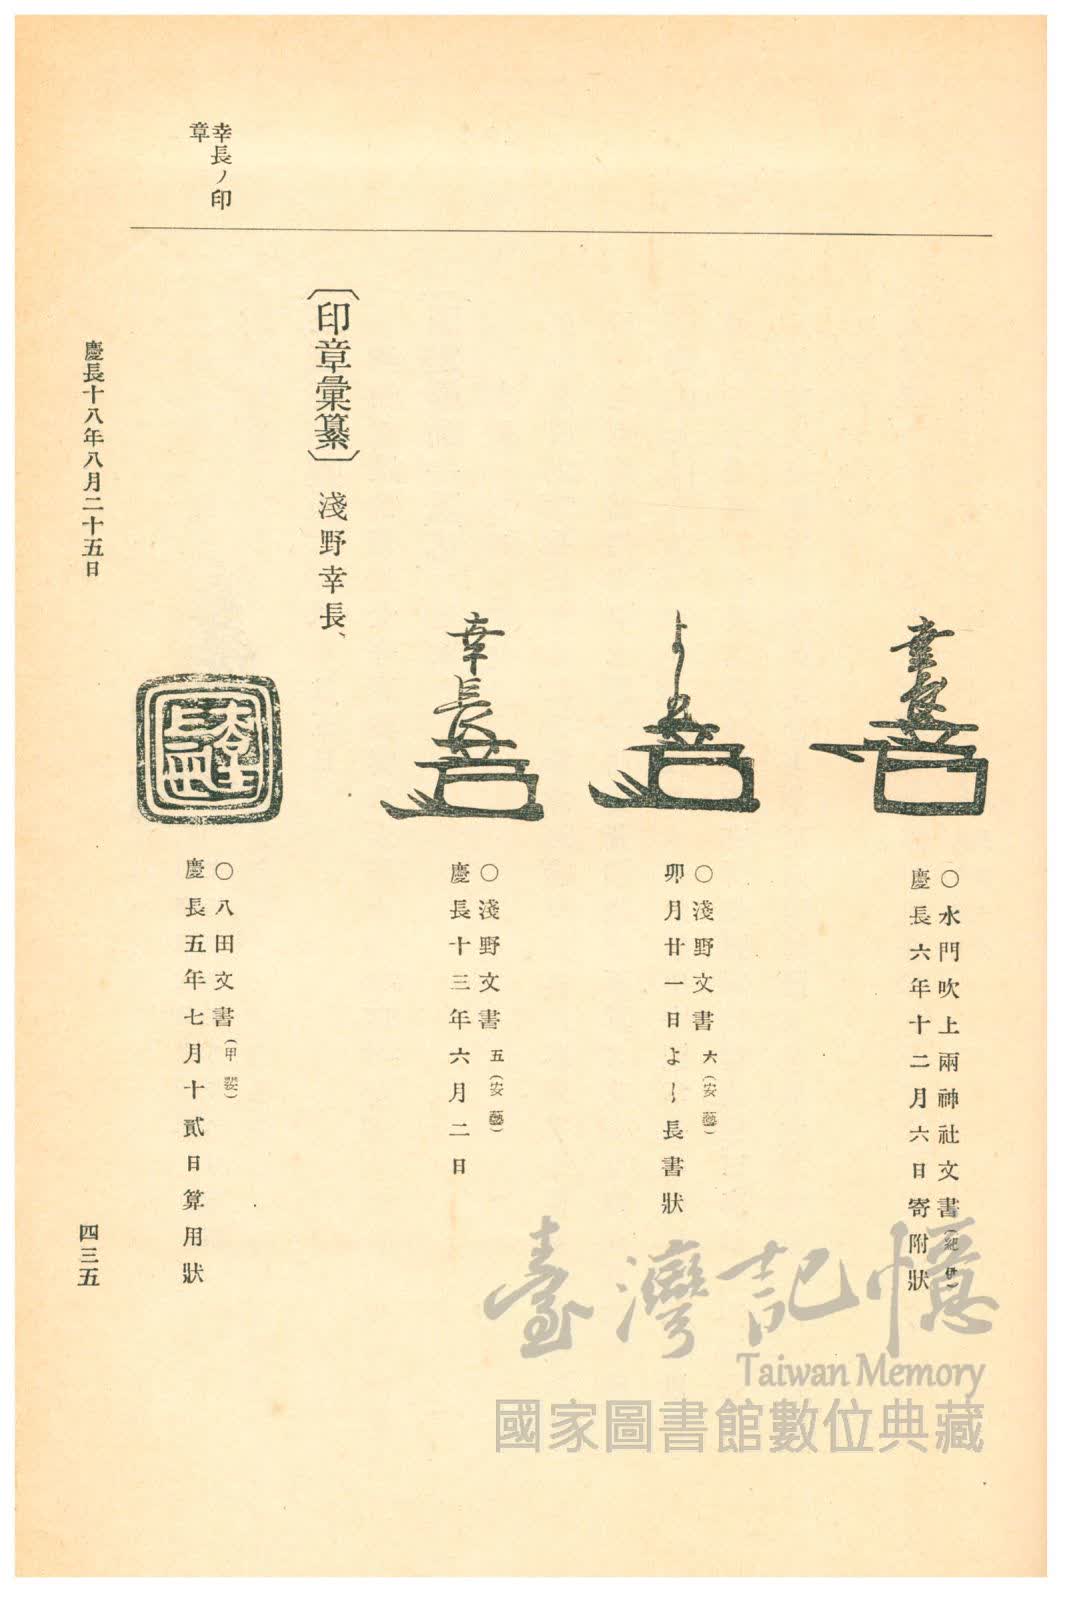 幸長ノ印
章
○水門吹上兩神社文書(紀伊)
慶長六年十二月六日寄附狀
○淺野文書 六(安藝)
卯月廿一日よし長書狀
幸長
○淺野文書 五(安藝)
慶長十三年六月二日
〔印章彙纂〕 淺野幸長、
○八田文書(甲斐)
慶長五年七月十貳日算用狀
慶長十八年八月二十五日
四三五
臺灣記憶
Taiwan Memory
國家圖書館數位典藏